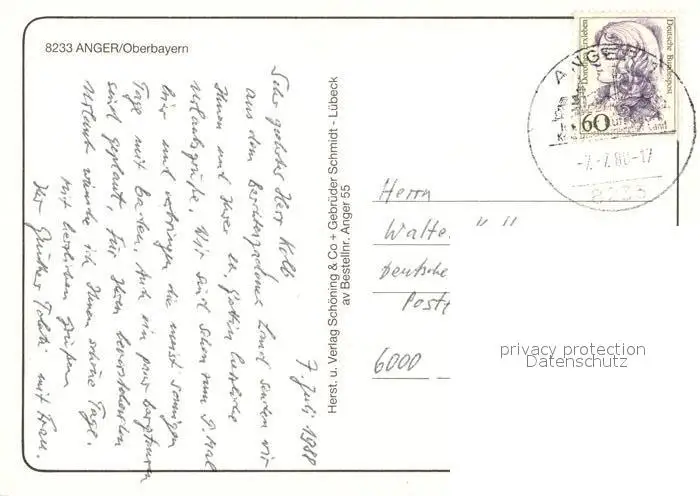 8233 ANGER/Oberbayern
7. Juli 1988
Sehr geehrter Herr Kolb
aus dem Berchtesgadener Land senden wir
Ihnen und Ihrer Gattin herzliche
Urlaubsgrüße. Wir sind schon zum 9. Mal
hier und verbringen die meist sonnigen
Tage mit Baden. Auch ein paar Bergtouren
sind geplant. Für Ihren bevorstehenden
Urlaub wünsche ich Ihnen schöne Tage.
Mit herzlichen Grüßen
Ihr Günther mit Frau.
Herst. u. Verlag Schöning & Co + Gebrüder Schmidt - Lübeck
av Bestellnr. Anger 55
Dorothea Erxleben
Deutsche Bundespost
60
ANGER
-7.-7.88-17
8233
Herrn
Walte. " "
Deutsche
Post
6000
privacy protection
Datenschutz